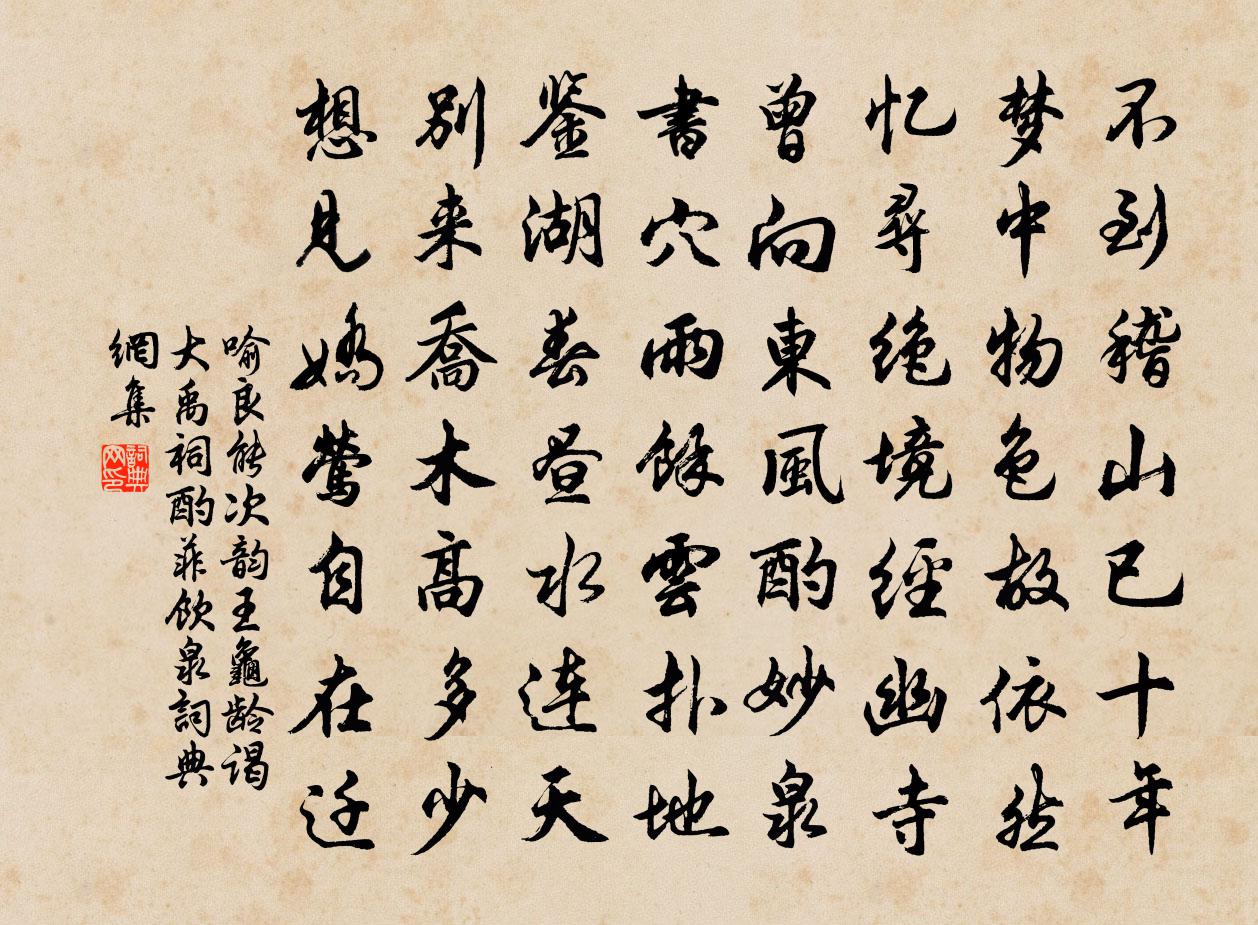 不到稽山已十年
梦中物色故依然
忆尋绝境經幽寺
曾向東風酌妙泉
書穴雨餘雲扑地
鉴湖春昼水連天
别来喬木高多少
想見嬌莺自在迁
喻良能次韵王龜龄谒
大禹祠酌菲饮泉詞典
網集
詞典
网印